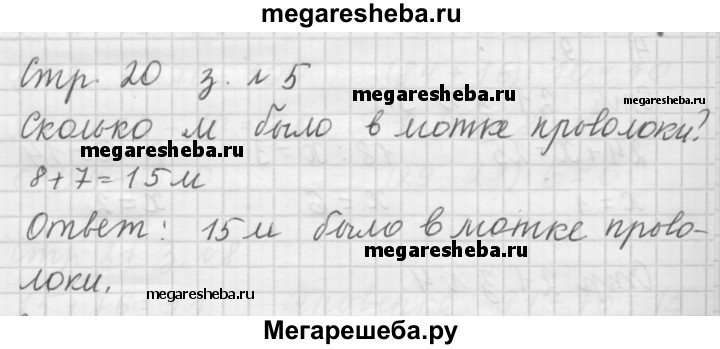 megaresheba.ru
Стр. 20 з. № 5
megaresheba.ru
megaresheba.ru
Сколько м было в мотке проволоки?
megaresheba.ru
8+7=15м
Ответ: 15м было в мотке прово-
megaresheba.ru
локи.
megaresheba.ru
Мегарешеба.ру